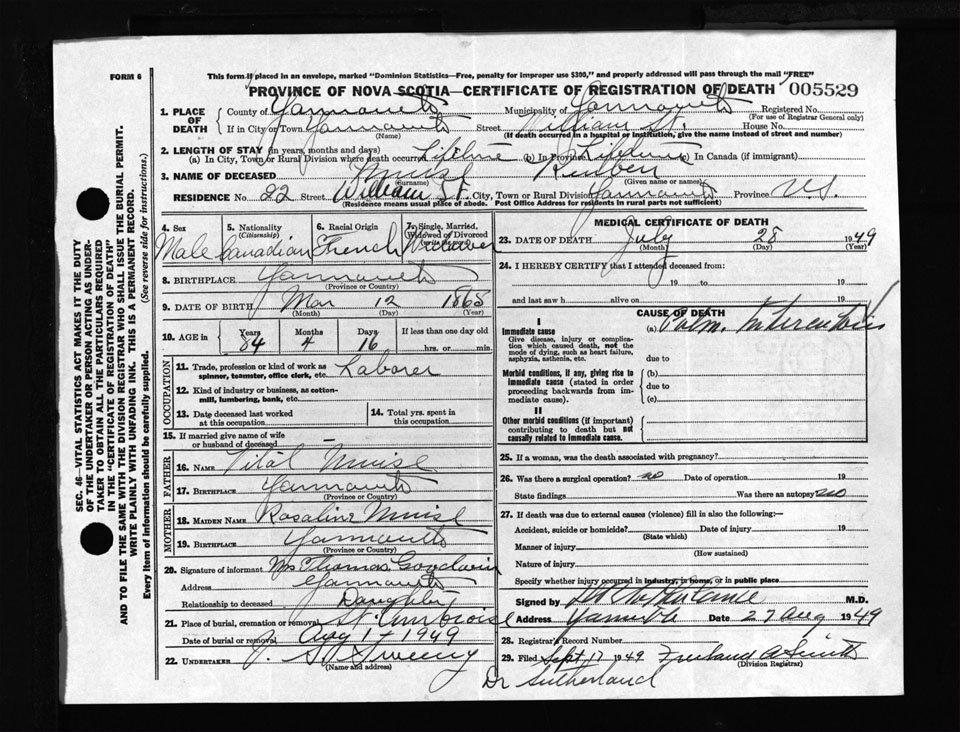 FORM 6
This form if placed in an envelope, marked "Dominion Statistics—Free, penalty for improper use $300," and properly addressed will pass through the mail "FREE"
PROVINCE OF NOVA SCOTIA—CERTIFICATE OF REGISTRATION OF DEATH 005529
1. PLACE OF DEATH County of Yarmouth Municipality of Yarmouth Registered No.
(For use of Registrar General only)
If in City or Town Yarmouth Street William St. House No.
(Name) (If death occurred in a hospital or institution, give the name instead of street and number)
2. LENGTH OF STAY (in years, months and days)
(a) In City, Town or Rural Division where death occurred Lifetime (b) In Province Lifetime (c) In Canada (if immigrant)
3. NAME OF DECEASED Muise Reuben
(Surname) (Given name or names)
RESIDENCE No. 22 Street William St. City, Town or Rural Division Yarmouth Province N.S.
(Residence means usual place of abode. Post Office Address for residents in rural parts not sufficient)
4. Sex 5. Nationality (Citizenship) 6. Racial Origin 7. Single, Married, Widowed or Divorced (write the word)
Male Canadian French Widower
8. BIRTHPLACE Yarmouth
(Province or Country)
9. DATE OF BIRTH Mar 12 1865
(Month) (Day) (Year)
10. AGE in Years Months Days If less than one day old
84 4 16 hrs. or min.
OCCUPATION
11. Trade, profession or kind of work as spinner, teamster, office clerk, etc. Laborer
12. Kind of industry or business, as cotton-mill, lumbering, bank, etc.
13. Date deceased last worked at this occupation
14. Total yrs. spent in this occupation
15. If married give name of wife or husband of deceased
FATHER
16. NAME Vital Muise
17. BIRTHPLACE Yarmouth
(Province or Country)
MOTHER
18. MAIDEN NAME Rosaline Muise
19. BIRTHPLACE Yarmouth
(Province or Country)
20. Signature of informant Mrs Thomas Goodwin
Address Yarmouth
Relationship to deceased Daughter
21. Place of burial, cremation or removal St. Ambroise
Date of burial or removal Aug 1st 1949
22. UNDERTAKER Sweeny
(Name and address)
MEDICAL CERTIFICATE OF DEATH
23. DATE OF DEATH July 28 1949
(Month) (Day) (Year)
24. I HEREBY CERTIFY that I attended deceased from:
19 to 19
and last saw h alive on 19
CAUSE OF DEATH
I
Immediate cause
Give disease, injury or complication which caused death, not the mode of dying, such as heart failure, asphyxia, asthenia, etc.
(a) Pulm. Tuberculosis
due to
Morbid conditions, if any, giving rise to immediate cause (stated in order proceeding backwards from immediate cause).
(b)
due to
(c)
II
Other morbid conditions (if important) contributing to death but not causally related to immediate cause.
25. If a woman, was the death associated with pregnancy?
26. Was there a surgical operation? no Date of operation 19
State findings Was there an autopsy no
27. If death was due to external causes (violence) fill in also the following:—
Accident, suicide or homicide? Date of injury 19
(State which)
Manner of injury
(How sustained)
Nature of injury
Specify whether injury occurred in industry, in home, or in public place
Signed by M.D.
Address Date 27 Aug 1949
28. Registrar's Record Number
29. Filed Sept. 17 1949 Freeland A Smith
(Division Registrar)
Dr Sutherland
SEC. 46—VITAL STATISTICS ACT MAKES IT THE DUTY
OF THE UNDERTAKER OR PERSON ACTING AS UNDER-
TAKER TO OBTAIN ALL THE PARTICULARS REQUIRED
IN THE "CERTIFICATE OF REGISTRATION OF DEATH"
AND TO FILE THE SAME WITH THE DIVISION REGISTRAR WHO SHALL ISSUE THE BURIAL PERMIT.
WRITE PLAINLY WITH UNFADING INK. THIS IS A PERMANENT RECORD.
Every item of information should be carefully supplied. (See reverse side for instructions.)